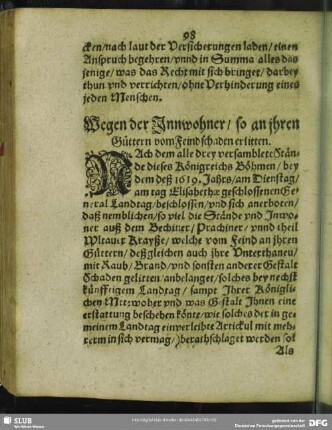 98
cken/nach laut der Versicherungen laden/ einen
Anspruch begehren/vnnd in Summa alles das
jenige/was das Recht mit sich bringet/darbey
thun vnd verrichten/ohne Verhinderung eines
jeden Menschen.
Wegen der Innwohner/ so an jhren
Güttern vom Feind schaden erlitten.
NAch dem alle drey versamblete Stän-
de dieses Königreichs Böhmen/ bey
dem deß 1619. Jahrs/am Dienstag/
am tag Elisabethæ geschlossenen Ge-
neral Landtag/beschlossen/vnd sich anerboten/
daß nemblichen/so viel die Stände vnd Inwo-
ner auß dem Bechiner/ Prachiner/ vnnd theil
Wltauer Krayße/ welche vom Feind an jhren
Güttern/deßgleichen auch jhre Vnterthanen/
mit Raub/ Brand/vnd sonsten anderer Gestalt
Schaden gelitten/anbelanget/solches bey nechst
künfftigem Landtag/ sampt Ihrer Königli-
chen Mtt: woher vnd was Gestalt Ihnen eine
erstattung beschehen könte/wie solches der in ge-
meinem Landtag einverleibte Artickul mit meh-
rerm in sich vermag/)berathschlaget werden sol
Als
SLUB
Wir führen Wissen.
gefördert von der
Deutschen Forschungsgemeinschaft
DFG